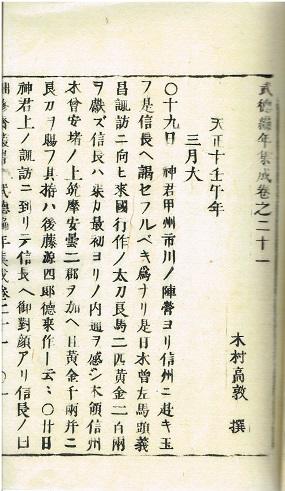 武德編年集成卷之二十一
木村高敦 撰
天正十壬午年
三月大
〇十九日 神君甲州市川ノ陣營ヨリ信州ニ赴キ玉
フ是信長ヘ謁セフルベキ爲ナリ是日木曾左馬頭義
昌諏訪ニ向ヒ來國行作ノ太刀良馬二匹黄金二百兩
ヲ獻ズ信長ハ
最初ヨリノ内通ヲ感シ本領信州
木曾安堵ノ上筑摩安曇二郡ヲ加ヘ且黄金千兩并ニ
良刀ヲ賜フ其拵ハ後藤源四郎德來作ト云云〇廿日
神君上ノ諏訪ニ到リテ信長ヘ御對顔アリ信長ノ曰